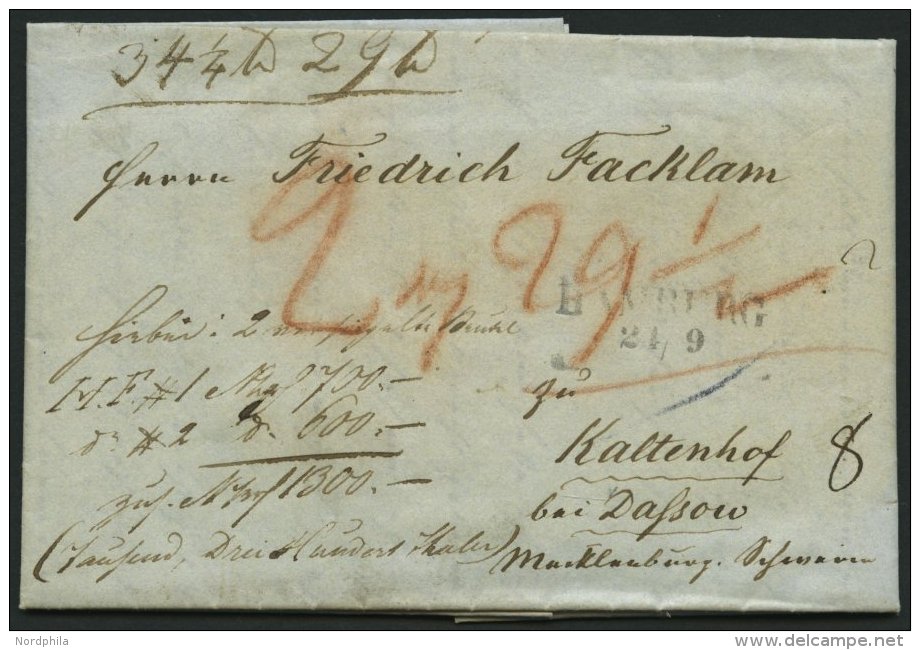 34 ¼ 29
Herrn Friedrich Facklam
2 29 ½
HAMBURG
24/9
hierbei: 2 versiegelte Beutel
M.F. #1 700.—
do #2 do. 600.—
zus. 1300.—
(Tausend, Drei Hundert Thaler)
zu
Kaltenhof
bei Dassow
Mecklenburg. Schwerin
8
Nordphila
delcampe.net